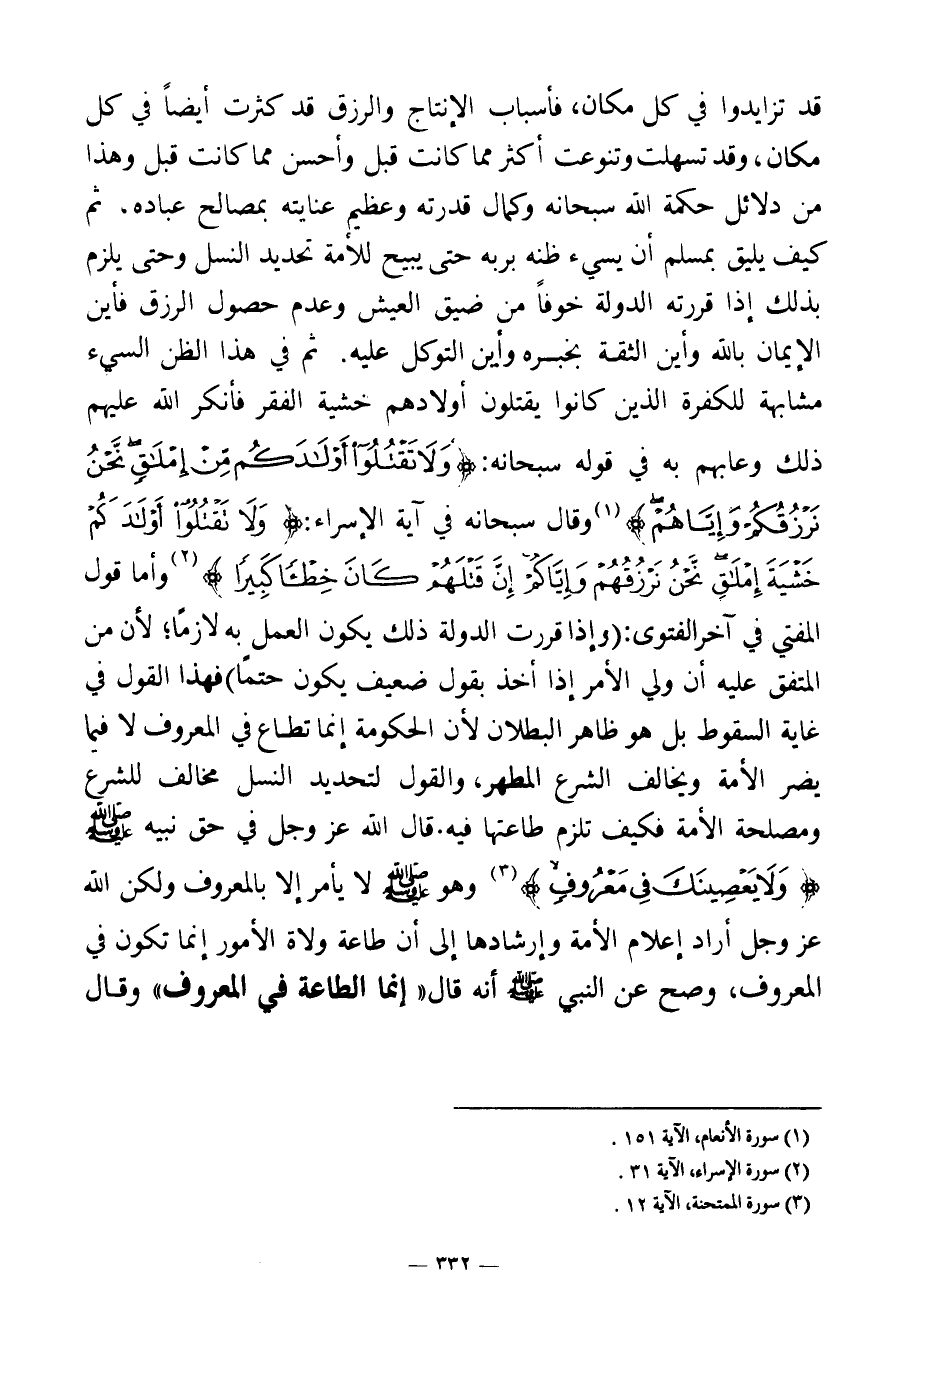 قد تزايدوا في كل مكان، فأسباب الإنتاج والرزق قد كثرت أيضاً في كل
مكان، وقد تسهلت وتنوعت أكثر مما كانت قبل وأحسن مما كانت قبل وهذا
من دلائل حكمة الله سبحانه وكمال قدرته وعظيم عنايته بمصالح عباده. ثم
كيف يليق بمسلم أن يسيء ظنه بربه حتى يبيح للأمة تحديد النسل وحتى يلزم
بذلك إذا قررته الدولة خوفاً من ضيق العيش وعدم حصول الرزق فأين
الإيمان بالله وأين الثقة بخبره وأين التوكل عليه. ثم في هذا الظن السيء
مشابهة للكفرة الذين كانوا يقتلون أولادهم خشية الفقر فأنكر الله عليهم
ذلك وعابهم به في قوله سبحانه: ﴿وَلَا تَقْتُلُوٓا۟ أَوْلَـٰدَكُم مِّنْ إِمْلَـٰقٍۖ نَّحْنُ
نَرْزُقُكُمْ وَإِيَّاهُمْۖ﴾(١) وقال سبحانه في آية الإسراء: ﴿وَلَا تَقْتُلُوٓا۟ أَوْلَـٰدَكُمْ
خَشْيَةَ إِمْلَـٰقٍۖ نَّحْنُ نَرْزُقُهُمْ وَإِيَّاكُمْۚ إِنَّ قَتْلَهُمْ كَانَ خِطْـًٔا كَبِيرًا﴾(٢) وأما قول
المفتي في آخر الفتوى: (وإذا قررت الدولة ذلك يكون العمل به لازمًا؛ لأن من
المتفق عليه أن ولي الأمر إذا أخذ بقول ضعيف يكون حتمًا) فهذا القول في
غاية السقوط بل هو ظاهر البطلان لأن الحكومة إنما تطاع في المعروف لا فيما
يضر الأمة ويخالف الشرع المطهر، والقول لتحديد النسل مخالف للشرع
ومصلحة الأمة فكيف تلزم طاعتها فيه. قال الله عز وجل في حق نبيه ﷺ
﴿وَلَا يَعْصِينَكَ فِى مَعْرُوفٍۙ﴾(٣) وهو ﷺ لا يأمر إلا بالمعروف ولكن الله
عز وجل أراد إعلام الأمة وإرشادها إلى أن طاعة ولاة الأمور إنما تكون في
المعروف، وصح عن النبي ﷺ أنه قال «إنما الطاعة في المعروف» وقال
(١) سورة الأنعام، الآية ١٥١ .
(٢) سورة الإسراء، الآية ٣١ .
(٣) سورة الممتحنة، الآية ١٢ .
— ٣٣٢ —